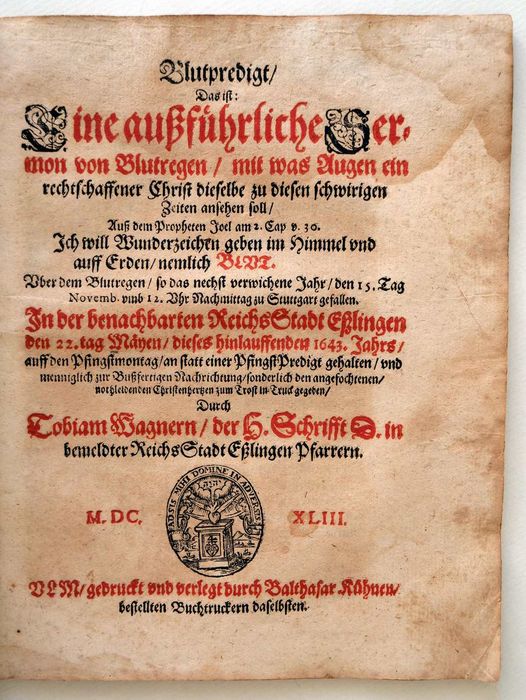 Blutpredigt/
Das ist:
Eine außführliche Ser-
mon von Blutregen / mit was Augen ein
rechtschaffener Christ dieselbe zu diesen schwirigen
Zeiten ansehen soll /
Auß dem Propheten Joel am 2. Cap v. 30.
Ich will Wunderzeichen geben im Himmel vnd
auff Erden / nemlich BLVT.
Vber dem Blutregen / so das nechst verwichene Jahr / den 15. Tag
Novemb. vmb 12. Vhr Nachmittag zu Stuttgart gefallen.
In der benachbarten ReichsStadt Eßlingen
den 22. tag Mäyen / dieses hinlauffenden 1643. Jahrs /
auff den Pfingstmontag / an statt einer PfingstPredigt gehalten / vnd
menniglich zur Bußfertigen Nachrichtung / sonderlich den angefochtenen /
nothleidenden Christenhertzen zum Trost in Truck gegeben /
Durch
Tobiam Wagnern / der H. Schrifft D. in
bemeldter ReichsStadt Eßlingen Pfarrern.
ADSIS MIHI DOMINE IN ADVERSIS
יהוה
M. DC. XLIII.
VLM / gedruckt vnd verlegt durch Balthasar Kühnen /
bestellten Buchtruckern daselbsten.